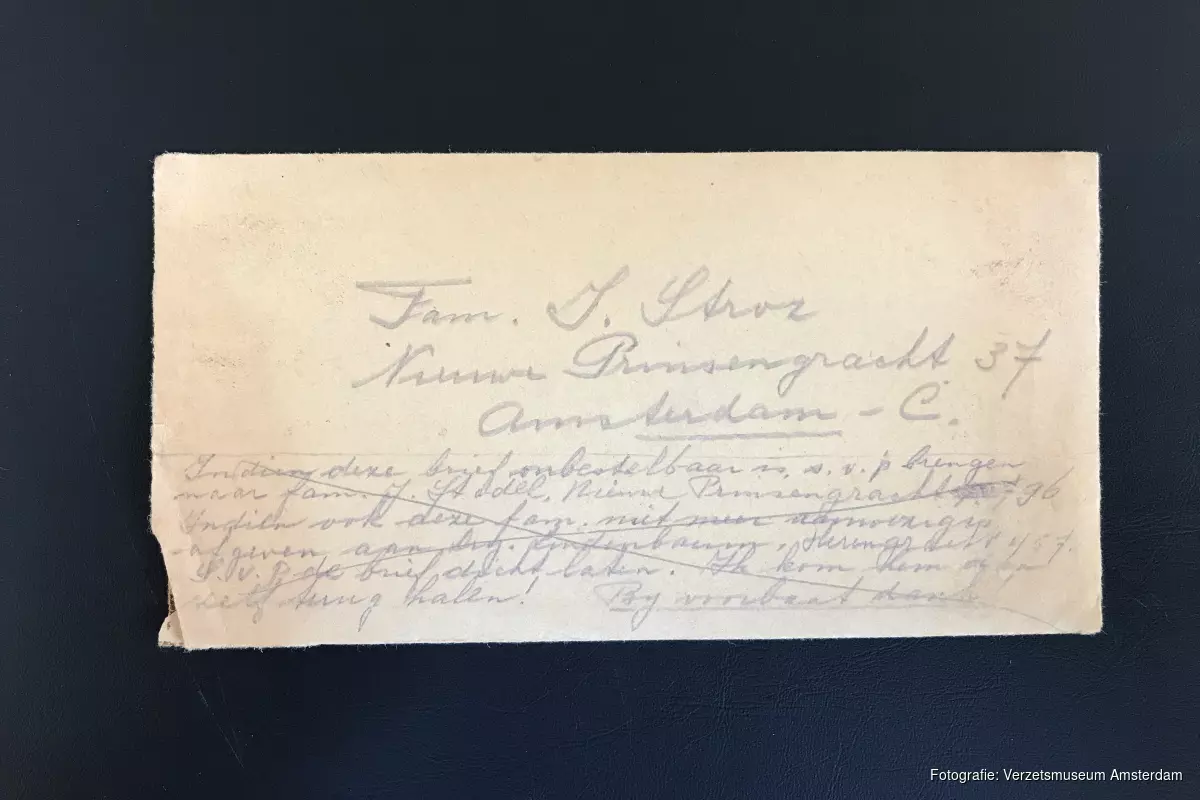 Fam. J. Stroz
Nieuwe Prinsengracht 37
Amsterdam - C.
Indien deze brief onbestelbaar is, s.v.p brengen
naar fam. J. Stodel, Nieuwe Prinsengracht 96
Indien ook deze fam. niet meer aanwezig is,
afgeven aan Lindenbaum, Herengracht 457.
S.v.p de brief dicht laten. Ik kom hem
zelf terug halen! By voorbaat dank
Fotografie: Verzetsmuseum Amsterdam